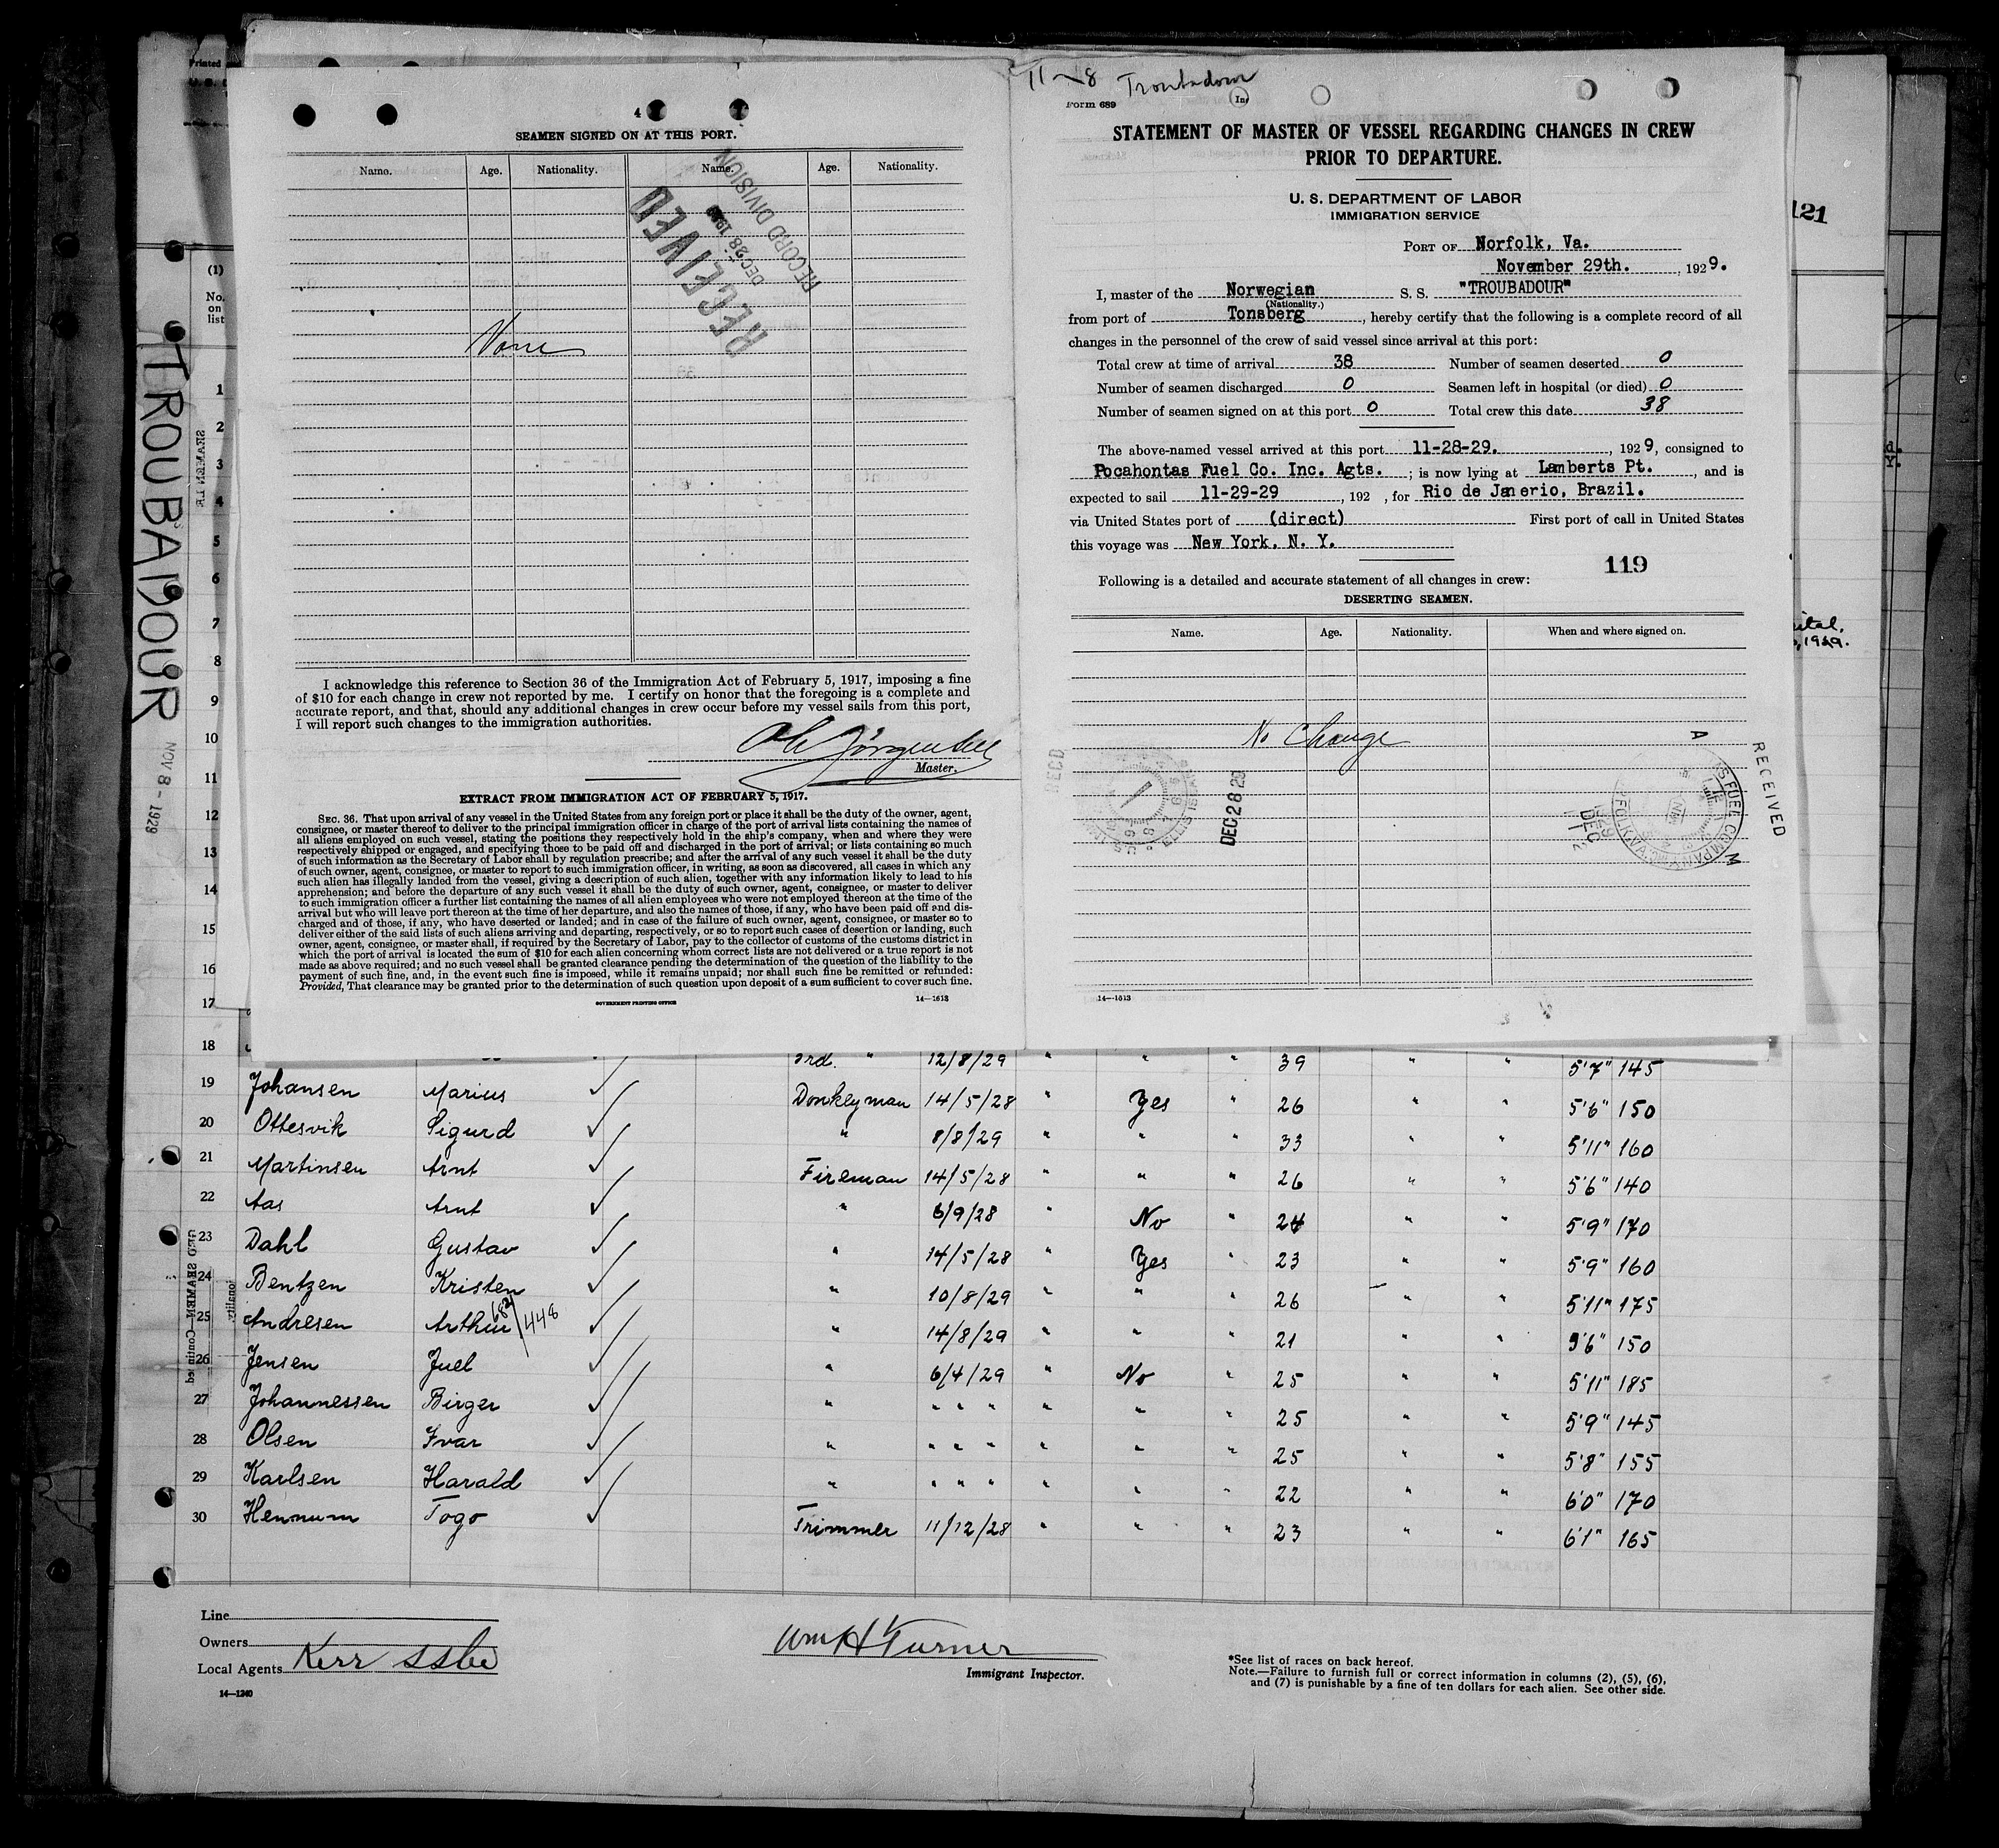 Printed
U. S.
(1)
No.
on
list
TROUBADOUR
NOV 8 - 1929
1
2
3
4
5
6
7
8
9
10
11
12
13
14
15
16
17
121
4
SEAMEN SIGNED ON AT THIS PORT.
Name. Age. Nationality. Name. Age. Nationality.
RECEIVED
DEC 28 19
RECORD DIVISION
None
I acknowledge this reference to Section 36 of the Immigration Act of February 5, 1917, imposing a fine
of $10 for each change in crew not reported by me. I certify on honor that the foregoing is a complete and
accurate report, and that, should any additional changes in crew occur before my vessel sails from this port,
I will report such changes to the immigration authorities.
Master.
EXTRACT FROM IMMIGRATION ACT OF FEBRUARY 5, 1917.
SEC. 36. That upon arrival of any vessel in the United States from any foreign port or place it shall be the duty of the owner, agent,
consignee, or master thereof to deliver to the principal immigration officer in charge of the port of arrival lists containing the names of
all aliens employed on such vessel, stating the positions they respectively hold in the ship's company, when and where they were
respectively shipped or engaged, and specifying those to be paid off and discharged in the port of arrival; or lists containing so much
of such information as the Secretary of Labor shall by regulation prescribe; and after the arrival of any such vessel it shall be the duty
of such owner, agent, consignee, or master to report to such immigration officer, in writing, as soon as discovered, all cases in which any
such alien has illegally landed from the vessel, giving a description of such alien, together with any information likely to lead to his
apprehension; and before the departure of any such vessel it shall be the duty of such owner, agent, consignee, or master to deliver
to such immigration officer a further list containing the names of all alien employees who were not employed thereon at the time of the
arrival but who will leave port thereon at the time of her departure, and also the names of those, if any, who have been paid off and dis-
charged and of those, if any, who have deserted or landed; and in case of the failure of such owner, agent, consignee, or master so to
deliver either of the said lists of such aliens arriving and departing, respectively, or so to report such cases of desertion or landing, such
owner, agent, consignee, or master shall, if required by the Secretary of Labor, pay to the collector of customs of the customs district in
which the port of arrival is located the sum of $10 for each alien concerning whom correct lists are not delivered or a true report is not
made as above required; and no such vessel shall be granted clearance pending the determination of the question of the liability to the
payment of such fine, and, in the event such fine is imposed, while it remains unpaid; nor shall such fine be remitted or refunded:
Provided, That clearance may be granted prior to the determination of such question upon deposit of a sum sufficient to cover such fine.
GOVERNMENT PRINTING OFFICE 14—1513
11-8 Troubadour
Form 689 In
STATEMENT OF MASTER OF VESSEL REGARDING CHANGES IN CREW
PRIOR TO DEPARTURE.
U. S. DEPARTMENT OF LABOR
IMMIGRATION SERVICE
PORT OF Norfolk, Va.
November 29th. , 1929.
I, master of the Norwegian S. S. "TROUBADOUR"
(Nationality.)
from port of Tonsberg , hereby certify that the following is a complete record of all
changes in the personnel of the crew of said vessel since arrival at this port:
Total crew at time of arrival 38 Number of seamen deserted 0
Number of seamen discharged 0 Seamen left in hospital (or died) 0
Number of seamen signed on at this port 0 Total crew this date 38
The above-named vessel arrived at this port 11-28-29. , 1929, consigned to
Pocahontas Fuel Co. Inc. Agts. ; is now lying at Lamberts Pt. , and is
expected to sail 11-29-29 , 192 , for Rio de Janerio, Brazil.
via United States port of (direct) First port of call in United States
this voyage was New York, N. Y.
119
Following is a detailed and accurate statement of all changes in crew:
DESERTING SEAMEN.
Name. Age. Nationality. When and where signed on.
No Change
RECD
DEC 28 29
RECEIVED
14—1513
18 3rd. " 12/8/29 " " " 39 " " 5'7" 145
19 Johansen Marius ✓ Donkeyman 14/5/28 " Yes " 26 " " 5'6" 150
20 Ottesvik Sigurd ✓ " 8/8/29 " " " 33 " " 5'11" 160
21 Martinsen Arnt ✓ Fireman 14/5/28 " " " 26 " " 5'6" 140
22 Aas Arnt ✓ " 6/9/28 " No " 24 " " 5'9" 170
23 Dahl Gustav ✓ " 14/5/28 " Yes " 23 " " 5'9" 160
24 Bentzen Kristen ✓ " 10/8/29 " " " 26 " " 5'11" 175
25 Andresen Arthur 682/448 ✓ " 14/8/29 " " " 21 " " 5'6" 150
26 Jensen Juel ✓ " 6/4/29 " No " 25 " " 5'11" 185
27 Johannessen Birger ✓ " " " " " " " 25 " " 5'9" 145
28 Olsen Ivar ✓ " " " " " " " 25 " " 5'8" 155
29 Karlsen Harald ✓ " " " " " " " 22 " " 6'0" 170
30 Hennum Togo ✓ Trimmer 11/12/28 " " " 23 " " 6'1" 165
Line
Owners
Local Agents Kerr SS Co
14—1240
Wm H Turner
Immigrant Inspector.
*See list of races on back hereof.
Note.—Failure to furnish full or correct information in columns (2), (5), (6),
and (7) is punishable by a fine of ten dollars for each alien. See other side.